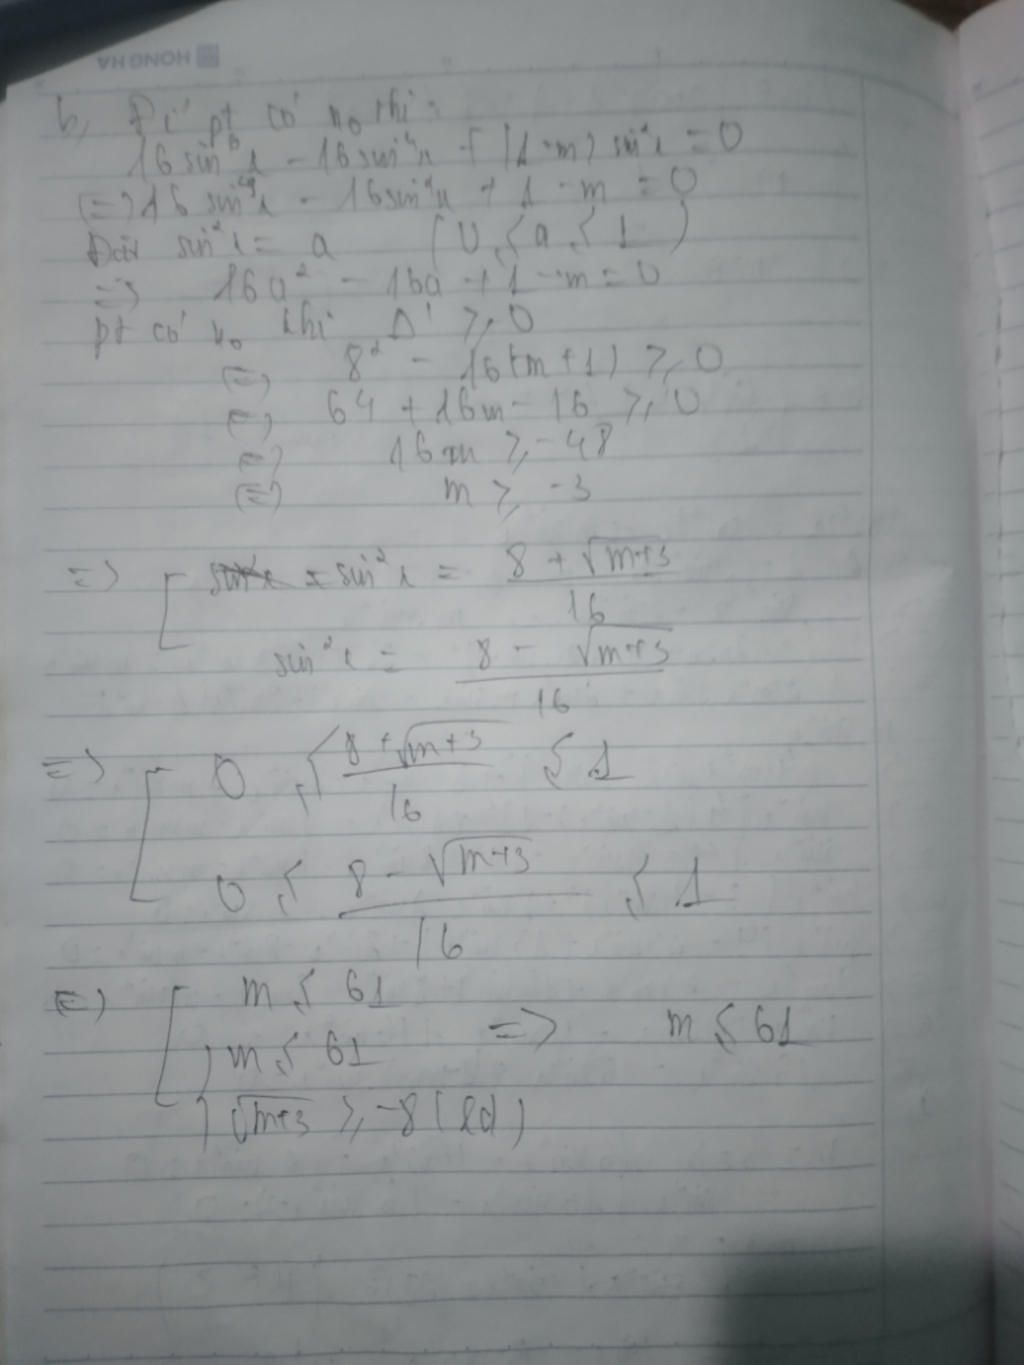 HONG HA
b, Để pt có no thì:
16 sin⁶x - 16 sin⁴x + (1 - m) sin²x = 0
(=) 16 sin⁴x - 16 sin²x + 1 - m = 0
Đặt sin²x = a (0 ≤ a ≤ 1)
=> 16a² - 16a + 1 - m = 0
pt có no khi Δ' ≥ 0
(=) 8² - 16(-m + 1) ≥ 0
(=) 64 + 16m - 16 ≥ 0
(=) 16m ≥ -48
(=) m ≥ -3
=> [ sin²x = (8 + √(m+3))/16
sin²x = (8 - √(m+3))/16
=> [ 0 ≤ (8 + √(m+3))/16 ≤ 1
0 ≤ (8 - √(m+3))/16 ≤ 1
(=) [ m ≤ 61
{ m ≤ 61 => m ≤ 61
√(m+3) ≥ -8 (lđ)